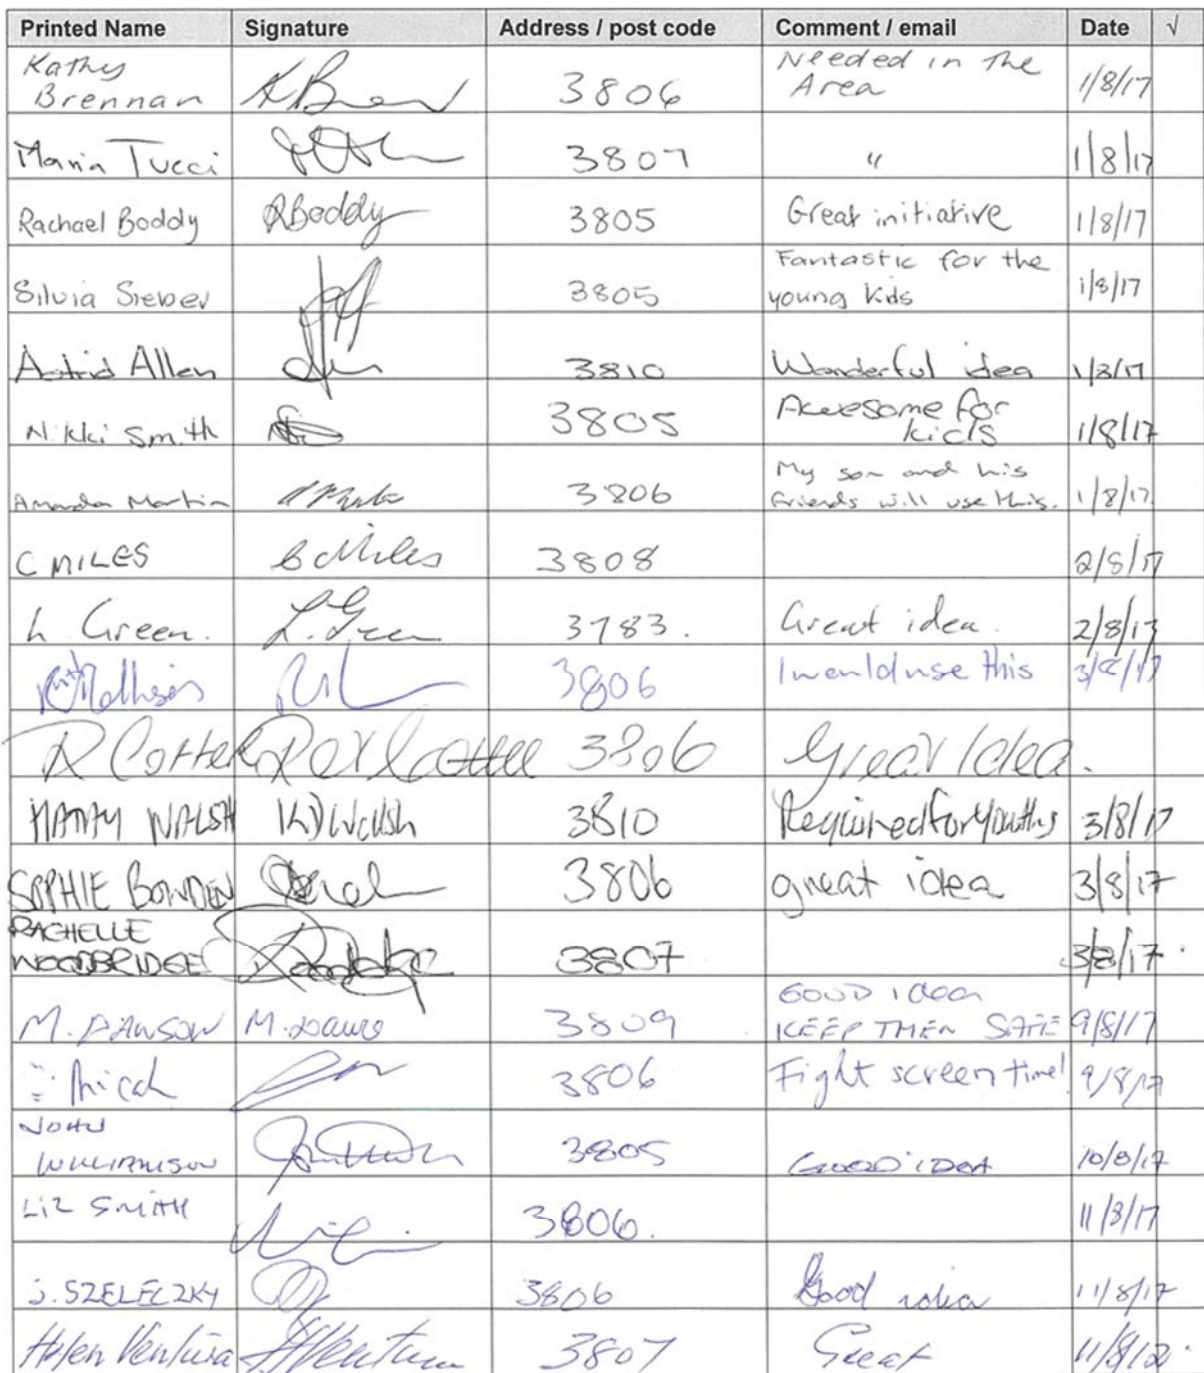 Printed Name Signature Address / post code Comment / email Date √
Kathy Needed in the
Brennan KBren 3806 Area 1/8/17
Maria Tucci 3807 " 1/8/17
Rachael Boddy RBoddy 3805 Great initiative 1/8/17
Fantastic for the
Silvia Sieber 3805 young kids 1/8/17
Astrid Allen 3810 Wonderful idea 1/8/17
Awesome for
Nikki Smith 3805 kids 1/8/17
My son and his
Amanda Martin 3806 friends will use this. 1/8/17
C MILES C Miles 3808 2/8/17
L Green. L. Green 3783. Great idea. 2/8/17
3806 I would use this 3/8/17
R Cotter 3806 Great Idea.
WALSH 3810 Required for Youths 3/8/17
SOPHIE BOWDEN 3806 great idea 3/8/17
RACHELLE
WOODBRIDGE 3807 3/8/17
GOOD idea
M. DAWSON M. Dawso 3809 KEEP THEN SAFE 9/8/17
3806 Fight screen time! 9/8/17
JOHN
WILLIAMSON 3805 GOOD IDEA 10/8/17
Liz SMITH 3806. 11/8/17
J. SZELECZKY 3806 Good idea 11/8/17
Helen Ventura HVentura 3807 Great 11/8/17